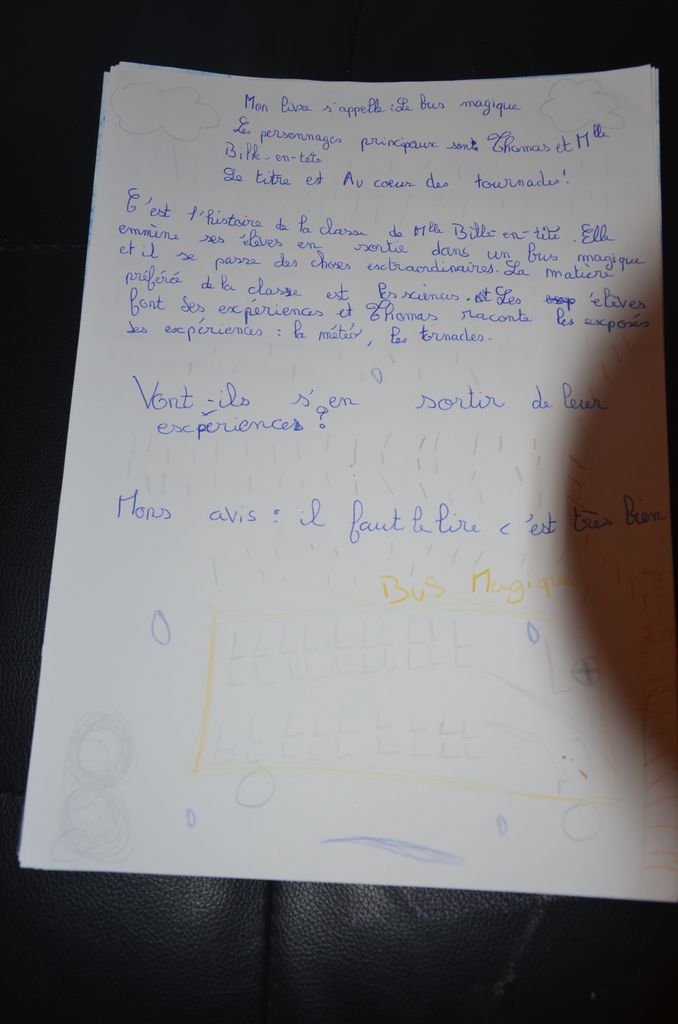 Mon livre s'appelle : Le bus magique
Les personnages principaux sont Thomas et Mlle
Bille-en-tête
Le titre est Au coeur des tournades !
C'est l'histoire de la classe de Mlle Bille-en-tête. Elle
emmène ses élèves en sortie dans un bus magique
et il se passe des choses esctraordinaires. La matière
préférée de la classe est les sciences. Les élèves
font des expériences et Thomas raconte les exposés
des expériences : la météo, les tornades.
Vont-ils s'en sortir de leur
escpériences ?
Mons avis : il faut le lire c'est très bien
BuS Magique